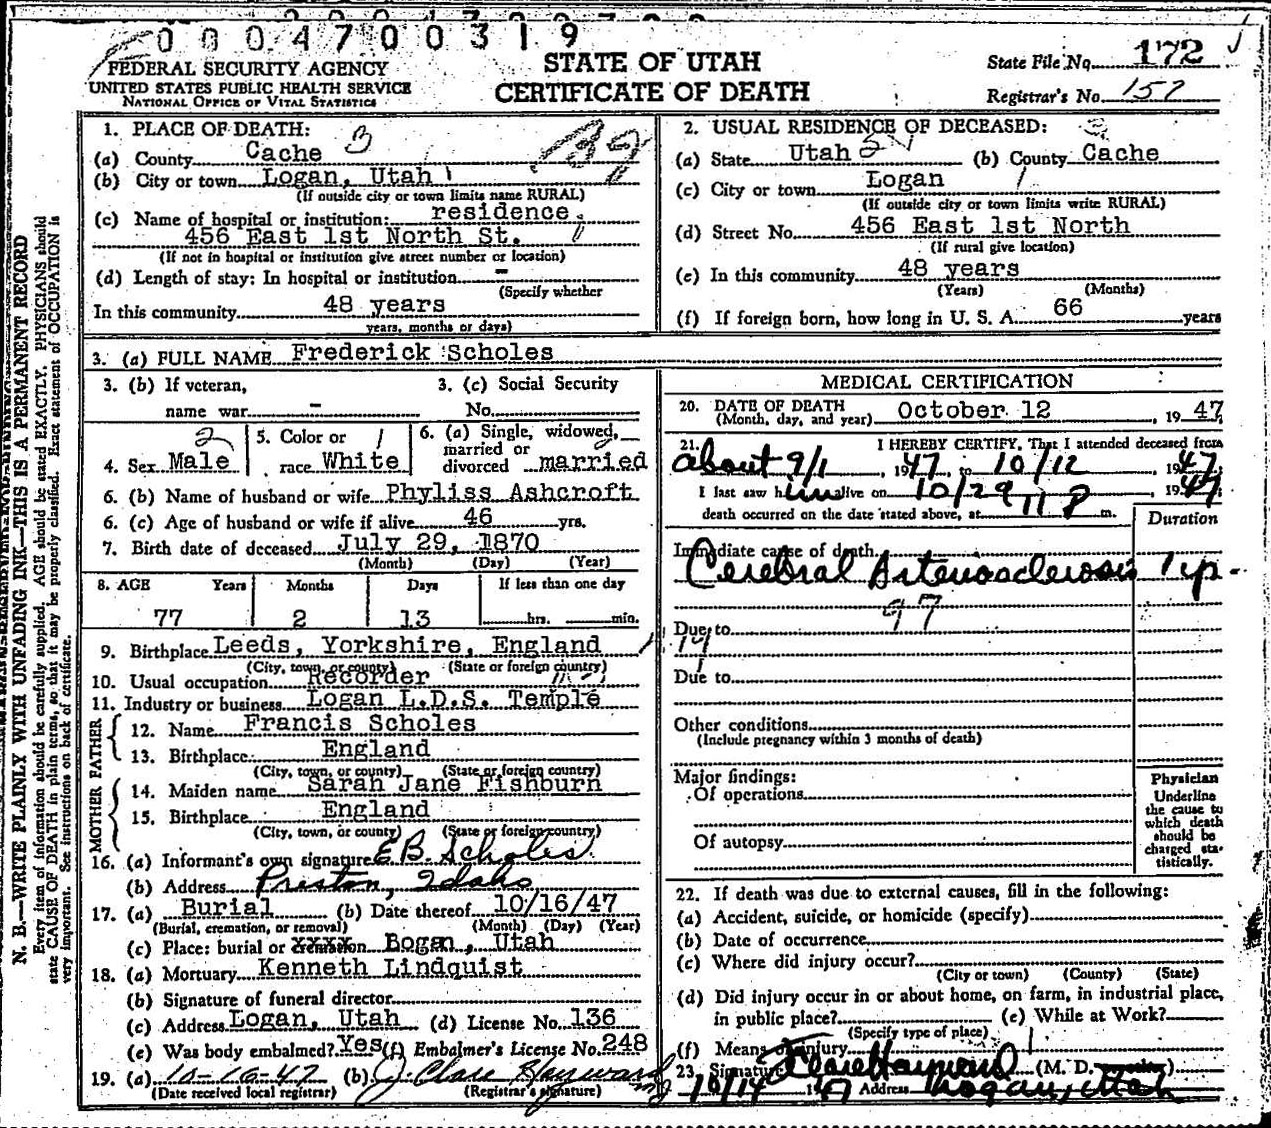 0 0 0 4 7 0 0 3 1 9
FEDERAL SECURITY AGENCY
UNITED STATES PUBLIC HEALTH SERVICE
NATIONAL OFFICE OF VITAL STATISTICS
STATE OF UTAH
CERTIFICATE OF DEATH
State File No. 172
Registrar's No. 157
N. B.—WRITE PLAINLY WITH UNFADING INK—THIS IS A PERMANENT RECORD
Every item of information should be carefully supplied. AGE should be stated EXACTLY. PHYSICIANS should
state CAUSE OF DEATH in plain terms, so that it may be properly classified. Exact statement of OCCUPATION is
very important. See instructions on back of certificate.
1. PLACE OF DEATH: 3
(a) County Cache
(b) City or town Logan, Utah
(If outside city or town limits name RURAL)
(c) Name of hospital or institution: residence
456 East 1st North St.
(If not in hospital or institution give street number or location)
(d) Length of stay: In hospital or institution -
(Specify whether
In this community 48 years
years, months or days)
2. USUAL RESIDENCE OF DECEASED:
(a) State Utah (b) County Cache
(c) City or town Logan
(If outside city or town limits write RURAL)
(d) Street No. 456 East 1st North
(If rural give location)
(e) In this community 48 years
(Years) (Months)
(f) If foreign born, how long in U. S. A. 66 years
3. (a) FULL NAME Frederick Scholes
3. (b) If veteran,
name war -
3. (c) Social Security
No.
4. Sex Male
5. Color or
race White
6. (a) Single, widowed,
married or
divorced married
6. (b) Name of husband or wife Phyliss Ashcroft
6. (c) Age of husband or wife if alive 46 yrs.
7. Birth date of deceased July 29, 1870
(Month) (Day) (Year)
8. AGE Years Months Days If less than one day
77 2 13 hrs. min.
9. Birthplace Leeds, Yorkshire, England
(City, town, or county) (State or foreign country)
10. Usual occupation Recorder
11. Industry or business Logan L.D.S. Temple
FATHER
12. Name Francis Scholes
13. Birthplace England
(City, town, or county) (State or foreign country)
MOTHER
14. Maiden name Sarah Jane Fishburn
15. Birthplace England
(City, town, or county) (State or foreign country)
16. (a) Informant's own signature E B. Scholes
(b) Address Preston, Idaho
17. (a) Burial (b) Date thereof 10/16/47
(Burial, cremation, or removal) (Month) (Day) (Year)
(c) Place: burial or cremation Bogan, Utah
18. (a) Mortuary Kenneth Lindquist
(b) Signature of funeral director
(c) Address Logan, Utah (d) License No. 136
(e) Was body embalmed? Yes (f) Embalmer's License No. 248
19. (a) 10-16-47 (b) J. Clare Hayward
(Date received local registrar) (Registrar's signature)
MEDICAL CERTIFICATION
20. DATE OF DEATH
(Month, day, and year) October 12, 1947
21. I HEREBY CERTIFY, That I attended deceased from
about 9/1, 1947, to 10/12, 1947
I last saw him alive on 10/29, 1947
death occurred on the date stated above, at 11 P m.
Duration
Immediate cause of death
Cerebral Arteriosclerosis 1 yr.
97
Due to
Due to
Other conditions
(Include pregnancy within 3 months of death)
Major findings:
Of operations
Of autopsy
Physician
Underline
the cause to
which death
should be
charged sta-
tistically.
22. If death was due to external causes, fill in the following:
(a) Accident, suicide, or homicide (specify)
(b) Date of occurrence
(c) Where did injury occur?
(City or town) (County) (State)
(d) Did injury occur in or about home, on farm, in industrial place,
in public place? (e) While at Work?
(Specify type of place)
(f) Means of injury
23. Signature J Clare Hayward (M. D.
10/14 1947 Address Logan, Utah